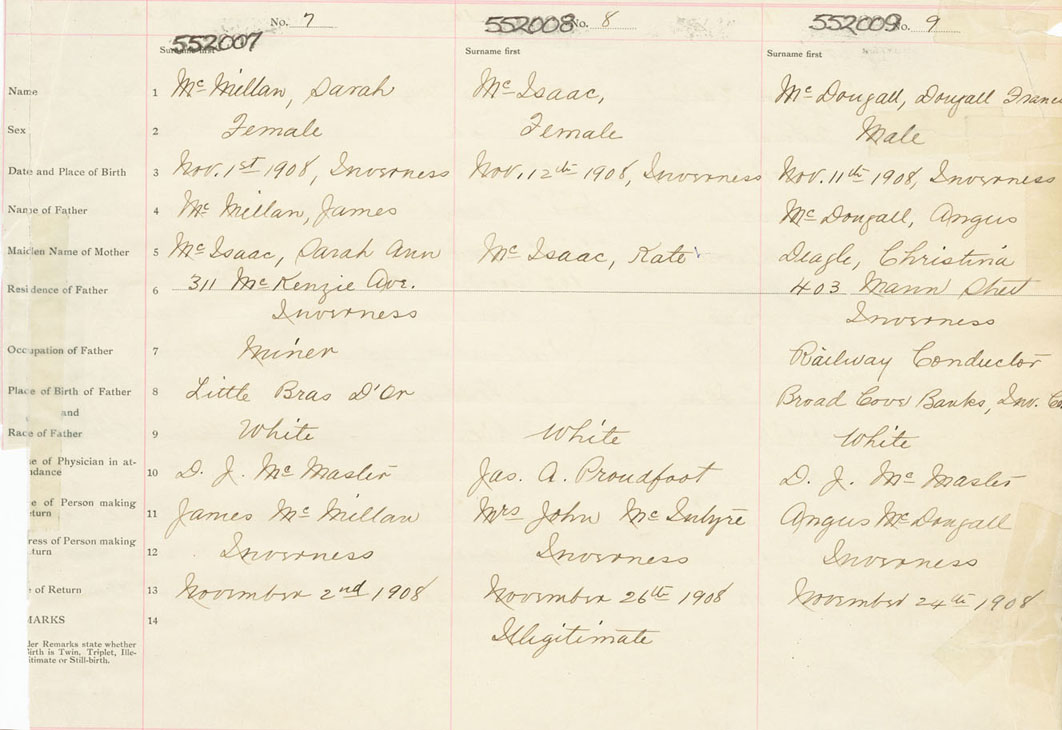 No. 7 552008 No. 8 552009 No. 9
552007
Surname first Surname first Surname first
Name 1 Mc Millan, Sarah Mc Isaac, Mc Dougall, Dougall Franc
Sex 2 Female Female Male
Date and Place of Birth 3 Nov. 1st 1908, Inverness Nov. 12th 1908, Inverness Nov. 11th 1908, Inverness
Name of Father 4 Mc Millan, James Mc Dougall, Angus
Maiden Name of Mother 5 Mc Isaac, Sarah Ann Mc Isaac, Kate Deagle, Christina
Residence of Father 6 311 McKenzie Ave. 403 Mann Street
Inverness Inverness
Occupation of Father 7 Miner Railway Conductor
Place of Birth of Father 8 Little Bras D'Or Broad Cove Banks, Inv. Co
and
Race of Father 9 White White White
e of Physician in at-
ndance 10 D. J. Mc Master Jas. A. Proudfoot D. J. Mc Master
e of Person making
eturn 11 James Mc Millan Mrs John Mc Intyre Angus McDougall
ress of Person making
turn 12 Inverness Inverness Inverness
e of Return 13 November 2nd 1908 November 26th 1908 November 24th 1908
MARKS 14 Illegitimate
der Remarks state whether
irth is Twin, Triplet, Ille-
itimate or Still-birth.